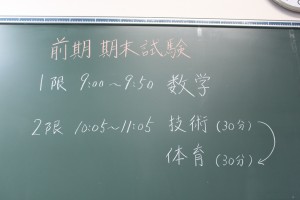 前期期末試験
1限 9:00～9:50 数学
2限 10:05～11:05 技術(30分)
体育(30分)